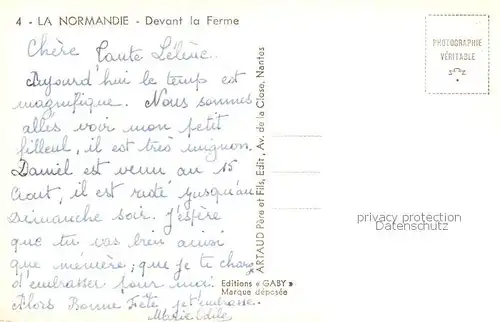 4 - LA NORMANDIE - Devant la Ferme
PHOTOGRAPHIE
VÉRITABLE
Chère Tante Lélène..
Aujourd'hui le temps est
magnifique. Nous sommes
allés voir mon petit
filleul, il est très mignon.
Daniel est venu au 15
Aout, il est resté jusqu'au
Dimanche soir. J'espère
que tu vas bien ainsi
que mémère; que je te charge
d'embrasser pour moi
Alors Bonne Fête je t'embrasse.
Marie Odile
ARTAUD Père et Fils, Edit., Av. de la Close, Nantes
Editions « GABY »
Marque déposée
privacy protection
Datenschutz